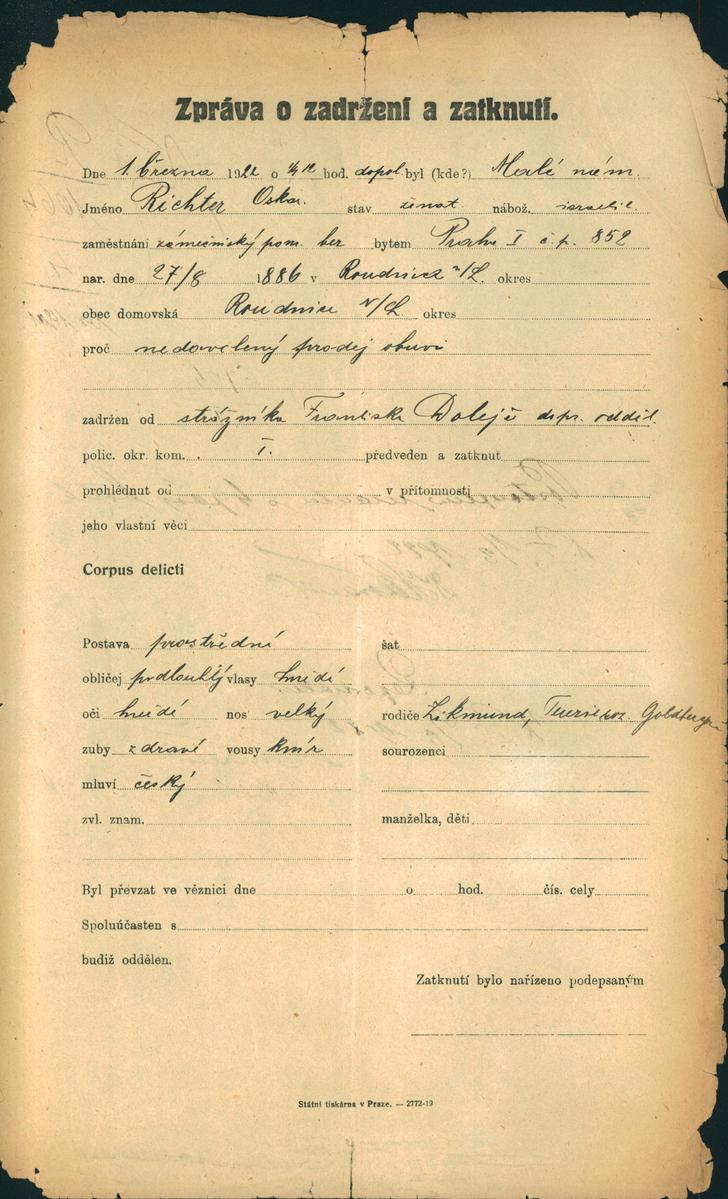 Zpráva o zadržení a zatknutí.
Dne 1. března 1922 o hod. dopol. byl (kde?) Malé nám.
Jméno Richter Oskar. stav ženat. nábož. israelit.
zaměstnání zámečnický pom. bytem Praha I č.p. 852
nar. dne 27/8 1886 v Roudnice n/L. okres
obec domovská Roudnice n/L okres
proč nedovolený prodej obuvi
zadržen od strážníka Františka Dolejše odděl.
polic. okr. kom. I. předveden a zatknut
prohlédnut od v přítomnosti
jeho vlastní věci
Corpus delicti
Postava prostřední šat
obličej podlouhlý vlasy hnědé
oči hnědé nos velký rodiče Zikmund, Goldberger
zuby zdravé vousy knír sourozenci
mluví česky
zvl. znam. manželka, děti
Byl převzat ve věznici dne o hod. čís. cely
Spoluúčasten s
budiž oddělen.
Zatknutí bylo nařízeno podepsaným
Státní tiskárna v Praze. — 2772-19